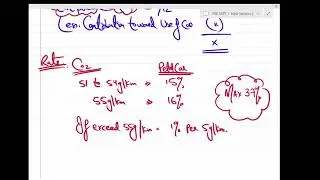 /12
Less: Contribution toward Use of Car (x)
x
Rate: CO2 Petrol Car
51 to 54g/km » 15%
55g/km » 16%
Max 37%
If exceed 55g/km = 1% per 5g/km.